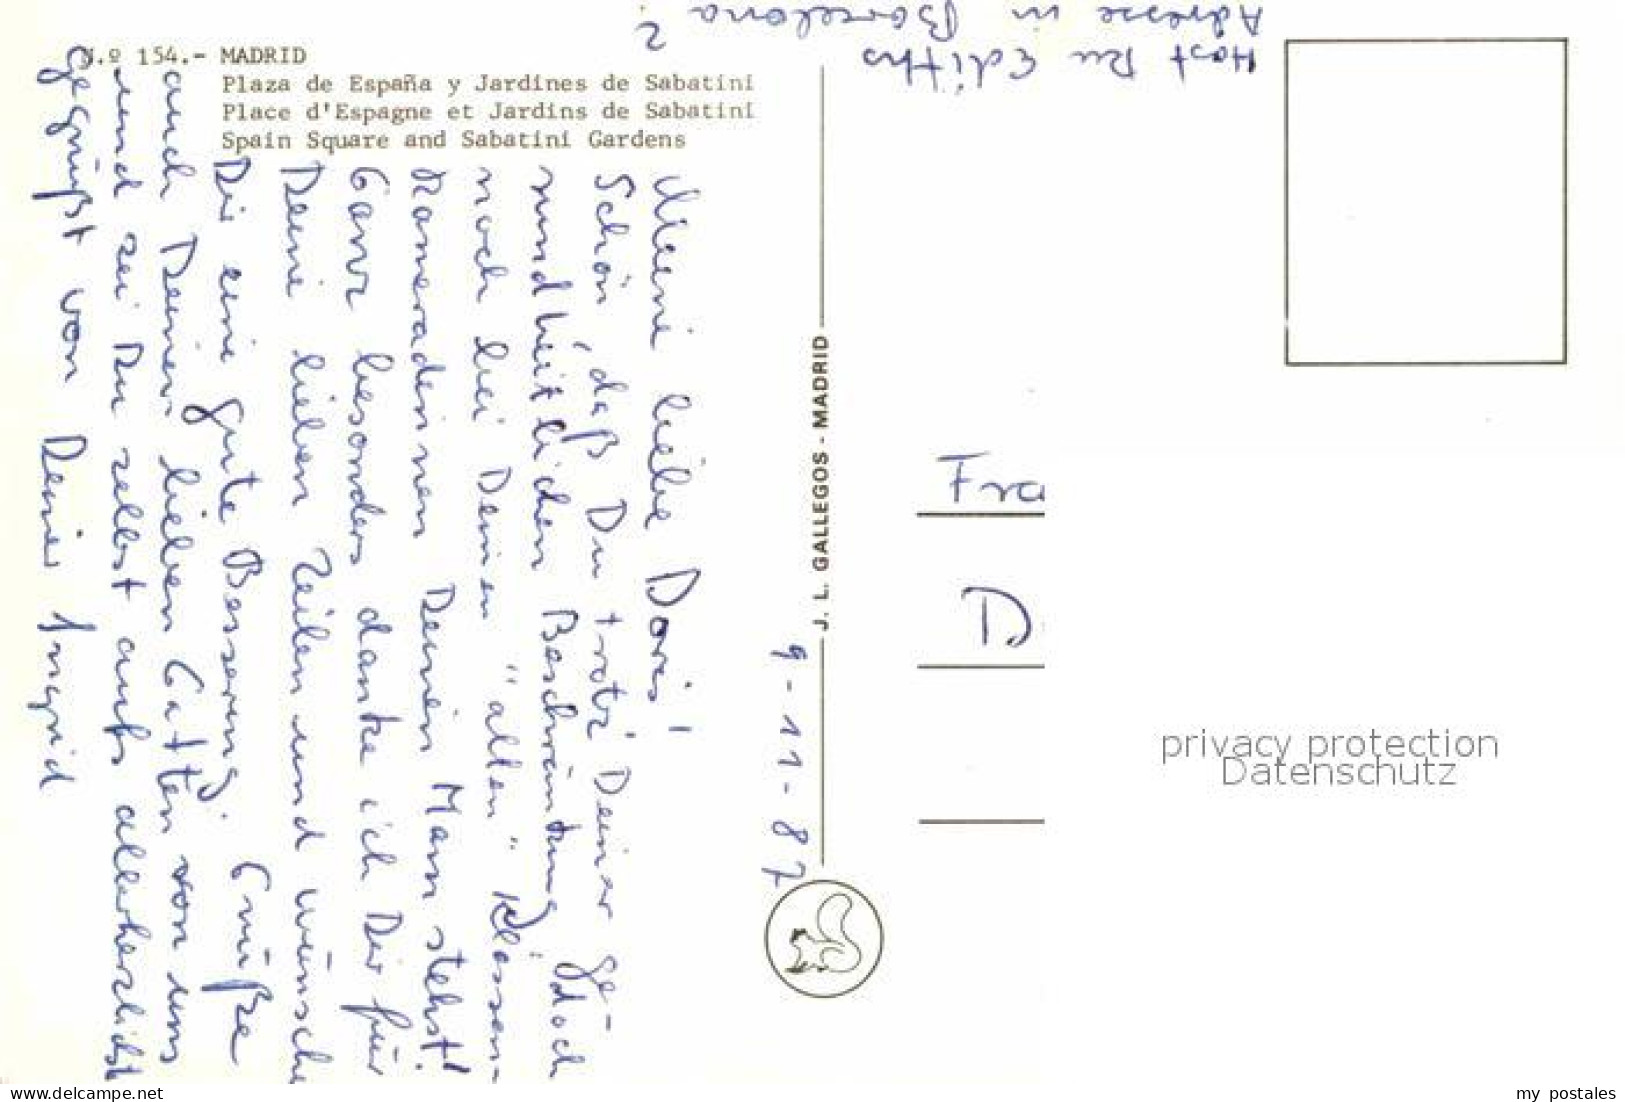 N.º 154.- MADRID
Plaza de España y Jardines de Sabatini
Place d'Espagne et Jardins de Sabatini
Spain Square and Sabatini Gardens
9-11-87
Meine liebe Doris!
Schön, daß Du trotz Deiner ge-
sundheitlichen Beschränkung doch
noch bei Deinen "alten" Klassen-
kameradinnen Deinen Mann stehst!
Ganz besonders danke ich Dir für
Deine lieben Zeilen und wünsche
Dir eine gute Besserung. Grüße
auch Deinen lieben Gatten von uns
und sei Du selbst aufs allerherzlichst
gegrüßt von Deiner Ingrid
Hast Du Ediths
Adresse in Barcelona
?
J. L. GALLEGOS - MADRID
Fra
D
privacy protection
Datenschutz
delcampe.net
my_postales